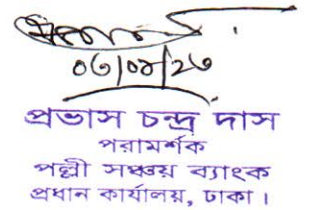 ০৩/০৪/২৩
প্রভাস চন্দ্র দাস
পরামর্শক
পল্লী সঞ্চয় ব্যাংক
প্রধান কার্যালয়, ঢাকা।